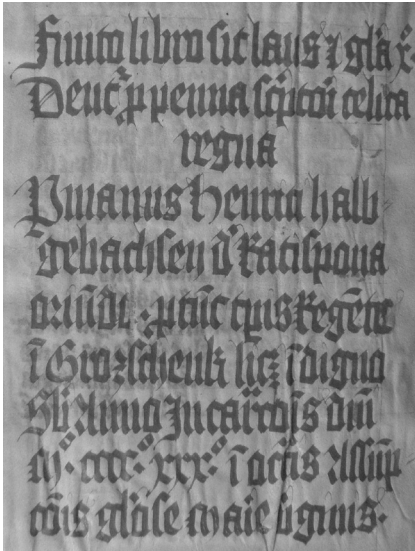 Finito libro sit laus ⁊ gl̃a x̃.
Dent̃ ꝑ penna sc̃ptori celica
regna
P manus Heinrici halb
gebachsen d' Ratispona
oriũdi · ꝑ tũc tp̃is Regẽte
ĩ Grozschenk licz ĩdigno
Sb̃ Anno Incar̃cõis dñi
M° · cccc° · xxx° · ĩ octis Assũp
cõis gl̃ose Maie ṽginis ·